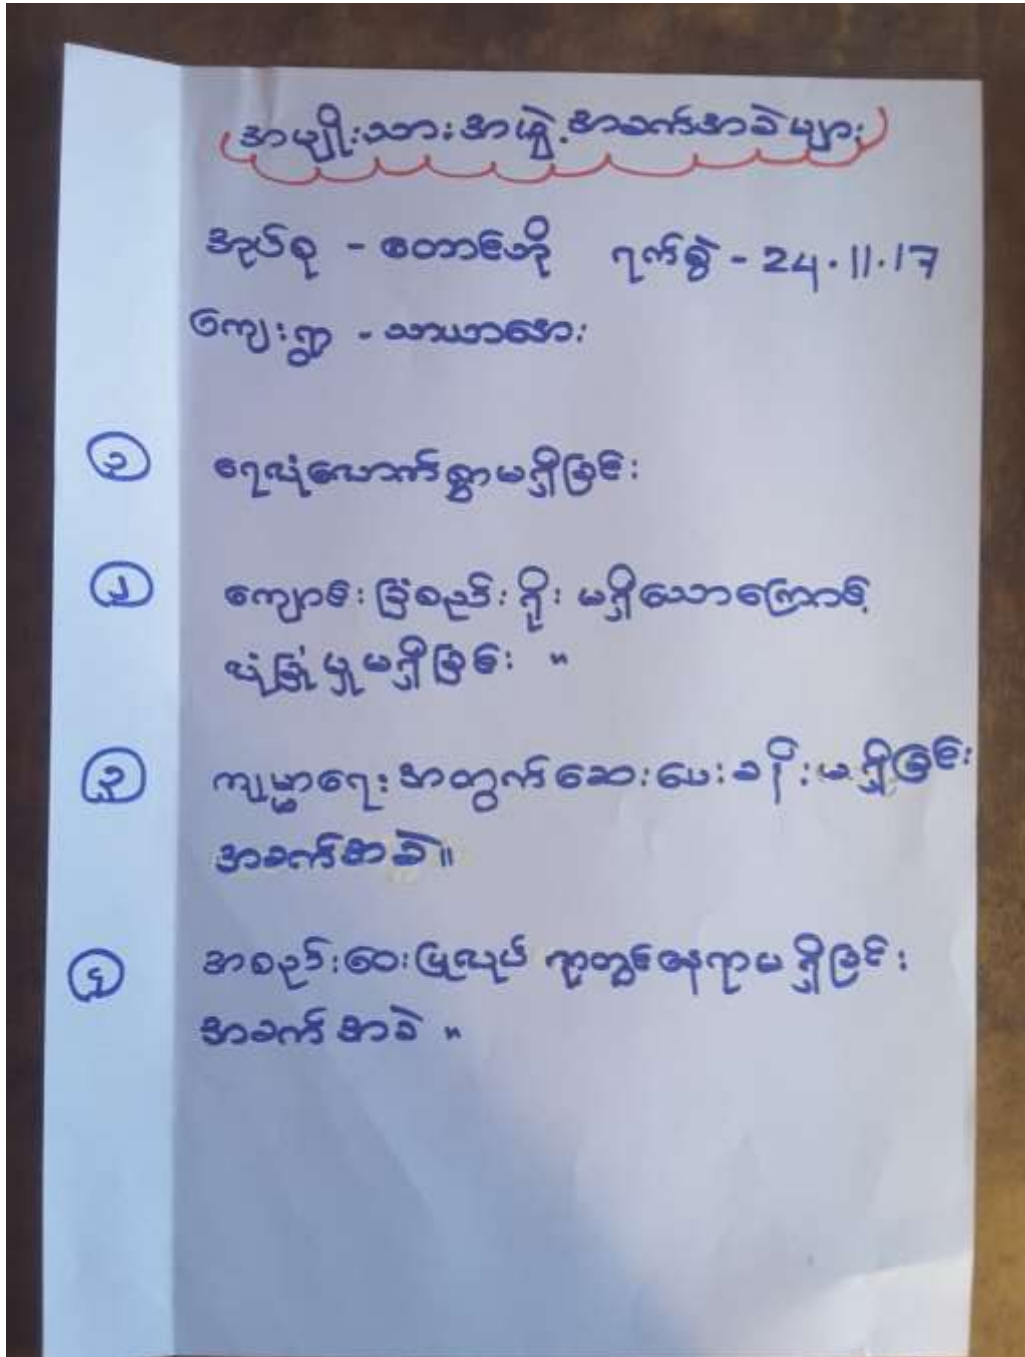 အမျိုးသားအဖွဲ့အခက်အခဲများ
အုပ်စု - တောင်ဘို ရက်စွဲ - 24.11.17
ကျေးရွာ - သာယာအေး
၁ ရေလုံလောက်စွာမရှိခြင်း
၂ ကျောင်းခြံစည်းရိုးမရှိသောကြောင့်
လုံခြုံမှုမရှိခြင်း ။
၃ ကျမ္မာရေးအတွက်ဆေးပေးခန်းမရှိခြင်း
အခက်အခဲ။
၄ အစည်းဝေးပြုလုပ်ရာတွင်နေရာမရှိခြင်း
အခက်အခဲ ။